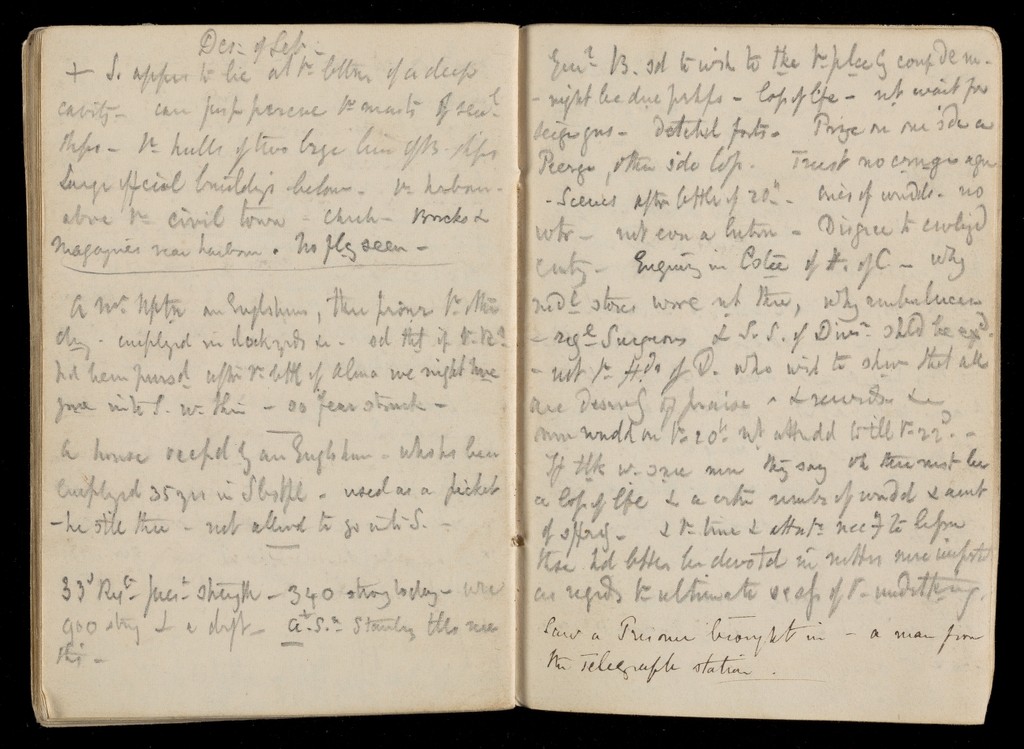 Des. of Seb.
+ S. appears to lie at the bottom of a deep
cavity - can just perceive the masts of sevl
ships - the hulls of two large line of B. ships
Large official buildings below. the harbour -
above the civil town - church - Barracks &
magazines near harbour. No flag seen -
A Mr Upton an Englishman, ther prisonr the other
day - employed in dockyards &c - sd tht if the R.
hd been pursd after the battl of Alma we might have
gone into S. wh thm - so fear struck -
A house occupd by an Englishmn - who has been
employed 35 yrs in Sbstpl. - used as a picket
- he still there - not allowed to go into S. -
33d Regt prest strength - 340 strong today - were
900 strong & a draft - At. Sn Stanley tells me
this -
Genl B. sd to wish to the the place by coup de m -
- might be due prhps - loss of life - not wait for
seige guns - Detached forts - Prize on one side a
Peerage, other side loss. Trust no
- Scenes after battle of 20th - cries of wounded - no
watr - not even a lantern - Disgrace to civilizd
cntry - Enquiry in Cotee of H. of C - why
medl stores were not there, why ambulances -
- regl Surgeons & S. S. of Divin shld be exd -
- not the Hds of D. who wish to show that all
are deserving of praise & rewards &c
men woundd on the 20th not attendd to till the 22d -
If tlk w. some men they say oh there must be
a loss of life & a certn number of woundd & amt
of sffrng - & the time & attntn necy to
these hd better be devoted in mattrs more importt
as regards the ultimate success of the undertaking.
Saw a Prisoner brought in - a man from
the Telegraph station.